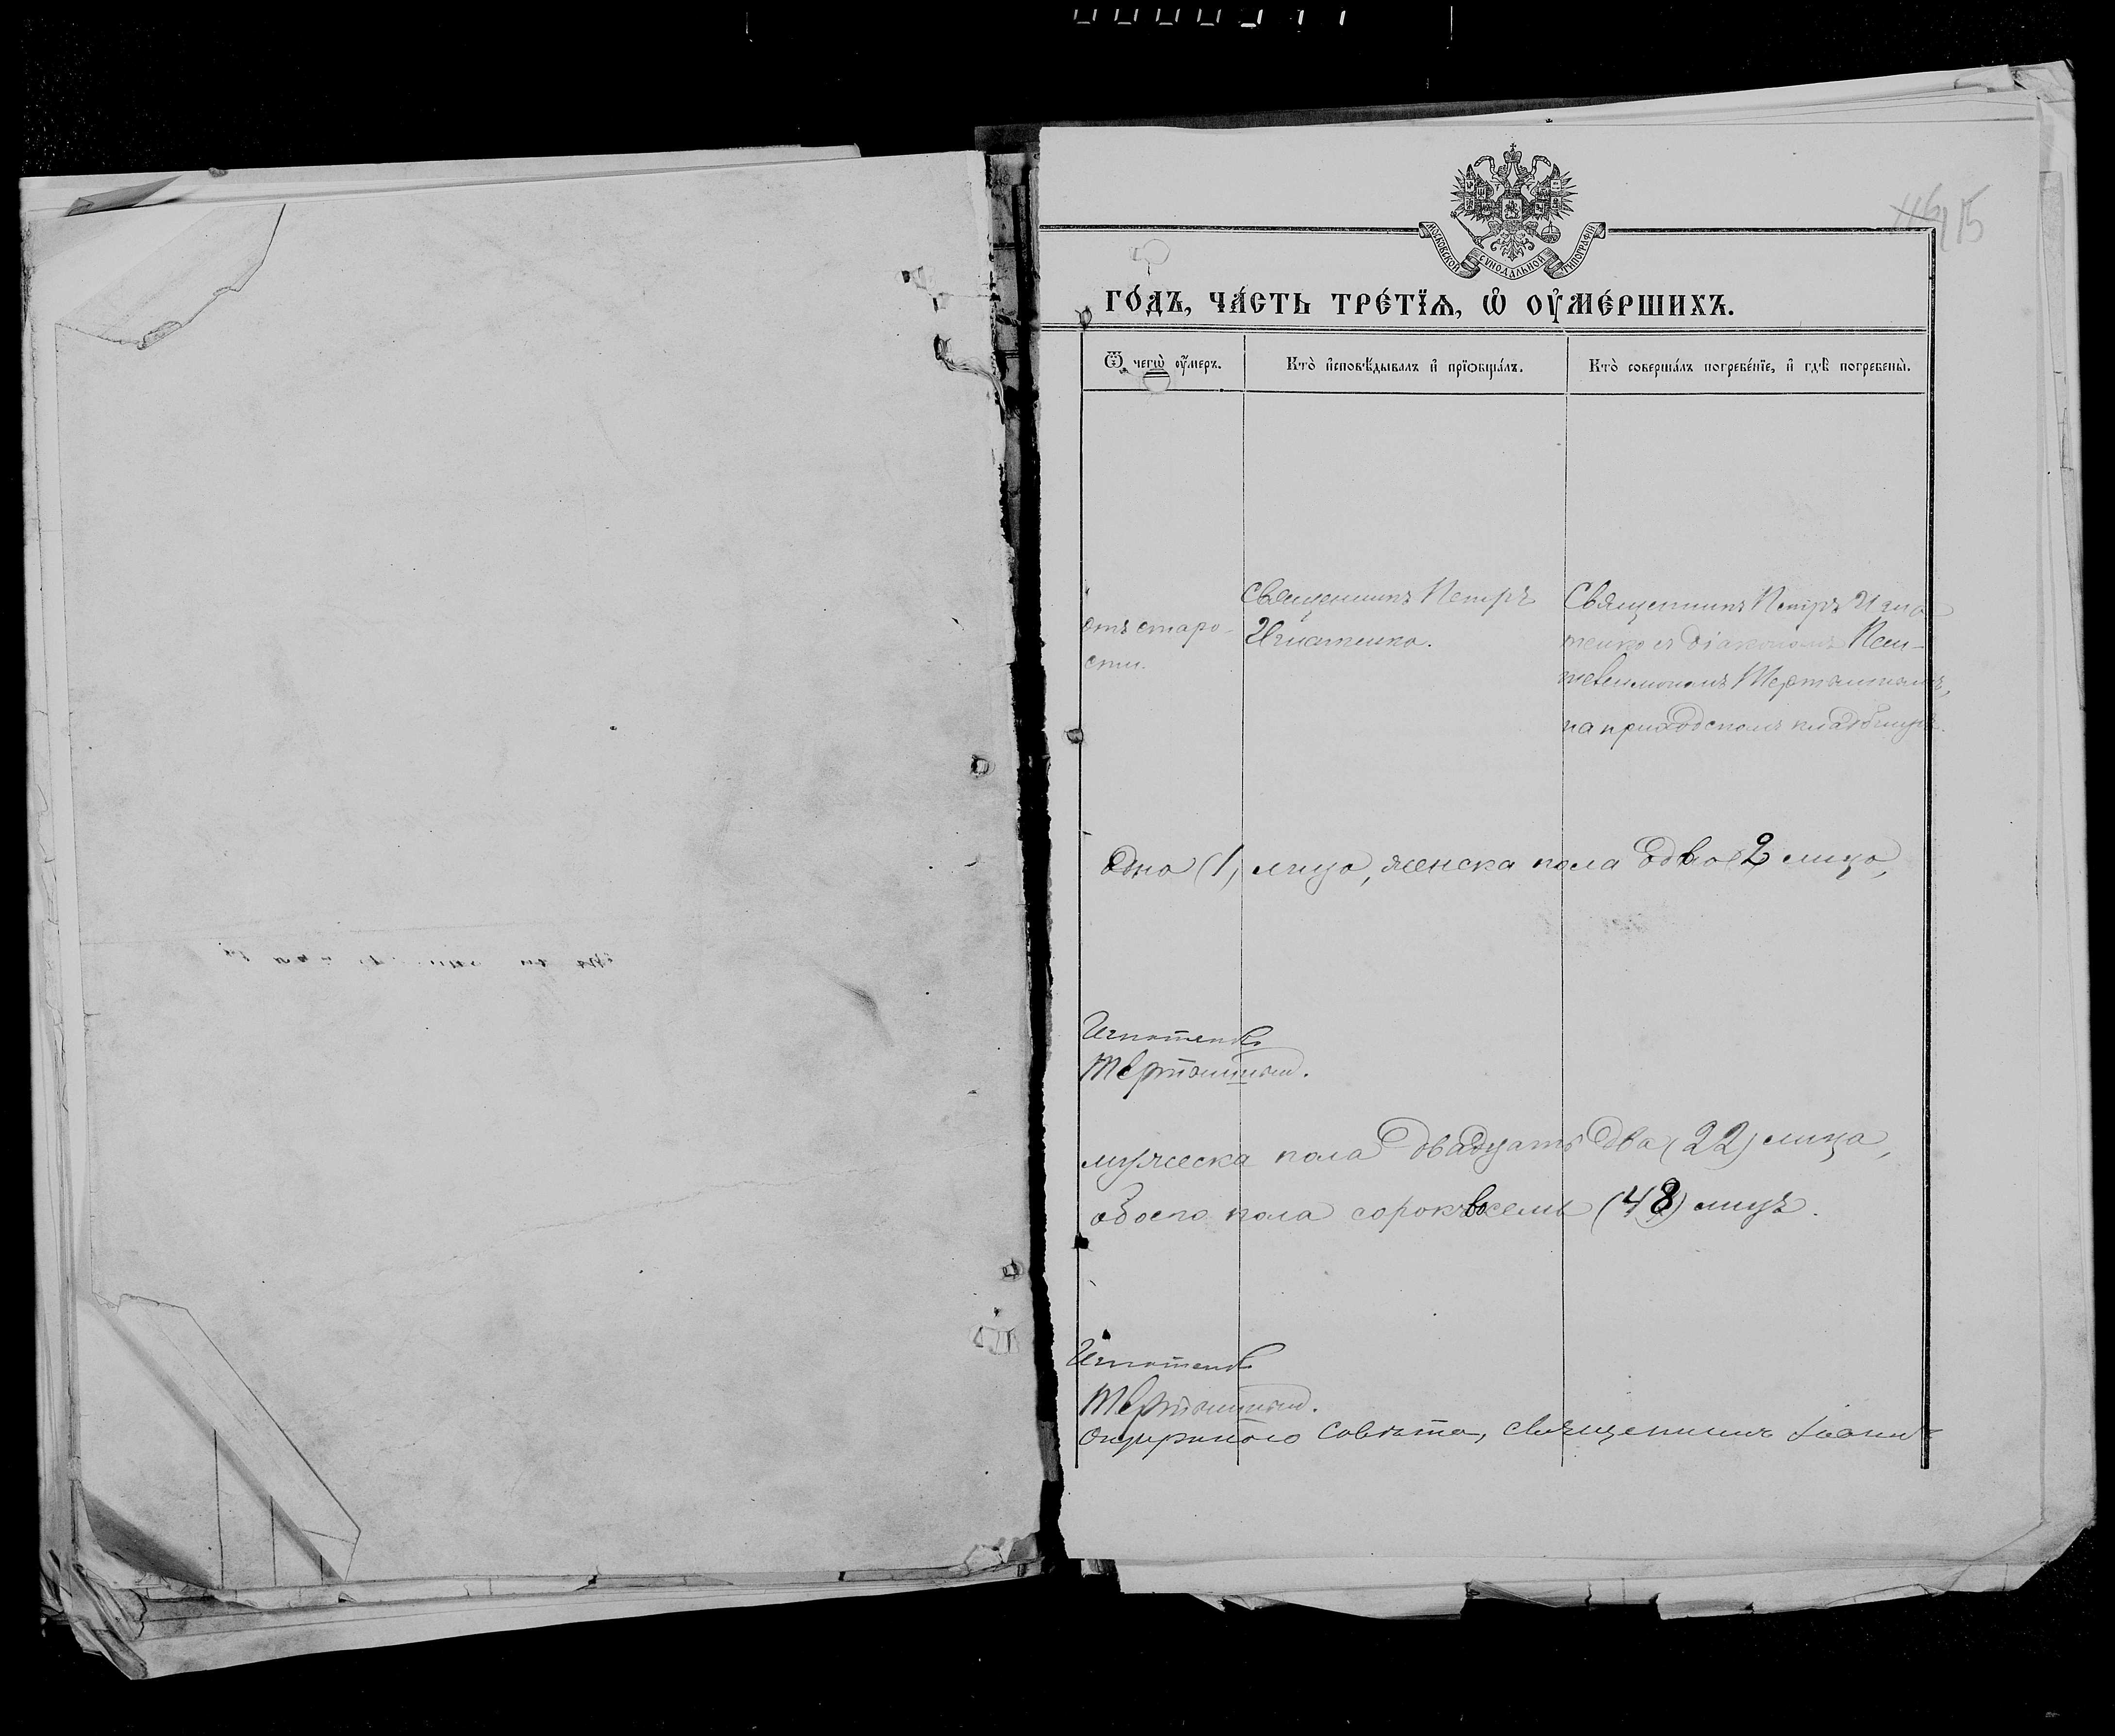 МОСКОВСКОЙ СѴНОДАЛЬНОЙ ТИПОГРАФІИ
115
го́дъ, ча́сть тре́тїѧ, ѡ҆ ᲂу҆ме́ршихъ.
Ѿ чегѡ̀ ᲂу҆́меръ.
Кто̀ и҆сповѣ́дывалъ и҆ прїѻбща́лъ.
Кто̀ соверша́лъ погребе́нїе, и҆ гдѣ̀ погребены̀.
отъ старо-
сти.
Священникъ Петръ
Игнатенко.
Священникъ Петръ Игна
тенко съ діакономъ Пан-
телеимономъ
на приходскомъ кладбищѣ.
Одно (1) лицо, женска пола двое 2 лица,
Игнатенко
мужеска пола двадцать два (22) лица,
обоего пола сорокъ восемь (48) лицъ.
Игнатенко
окружного совѣта, священникъ Іоаннъ